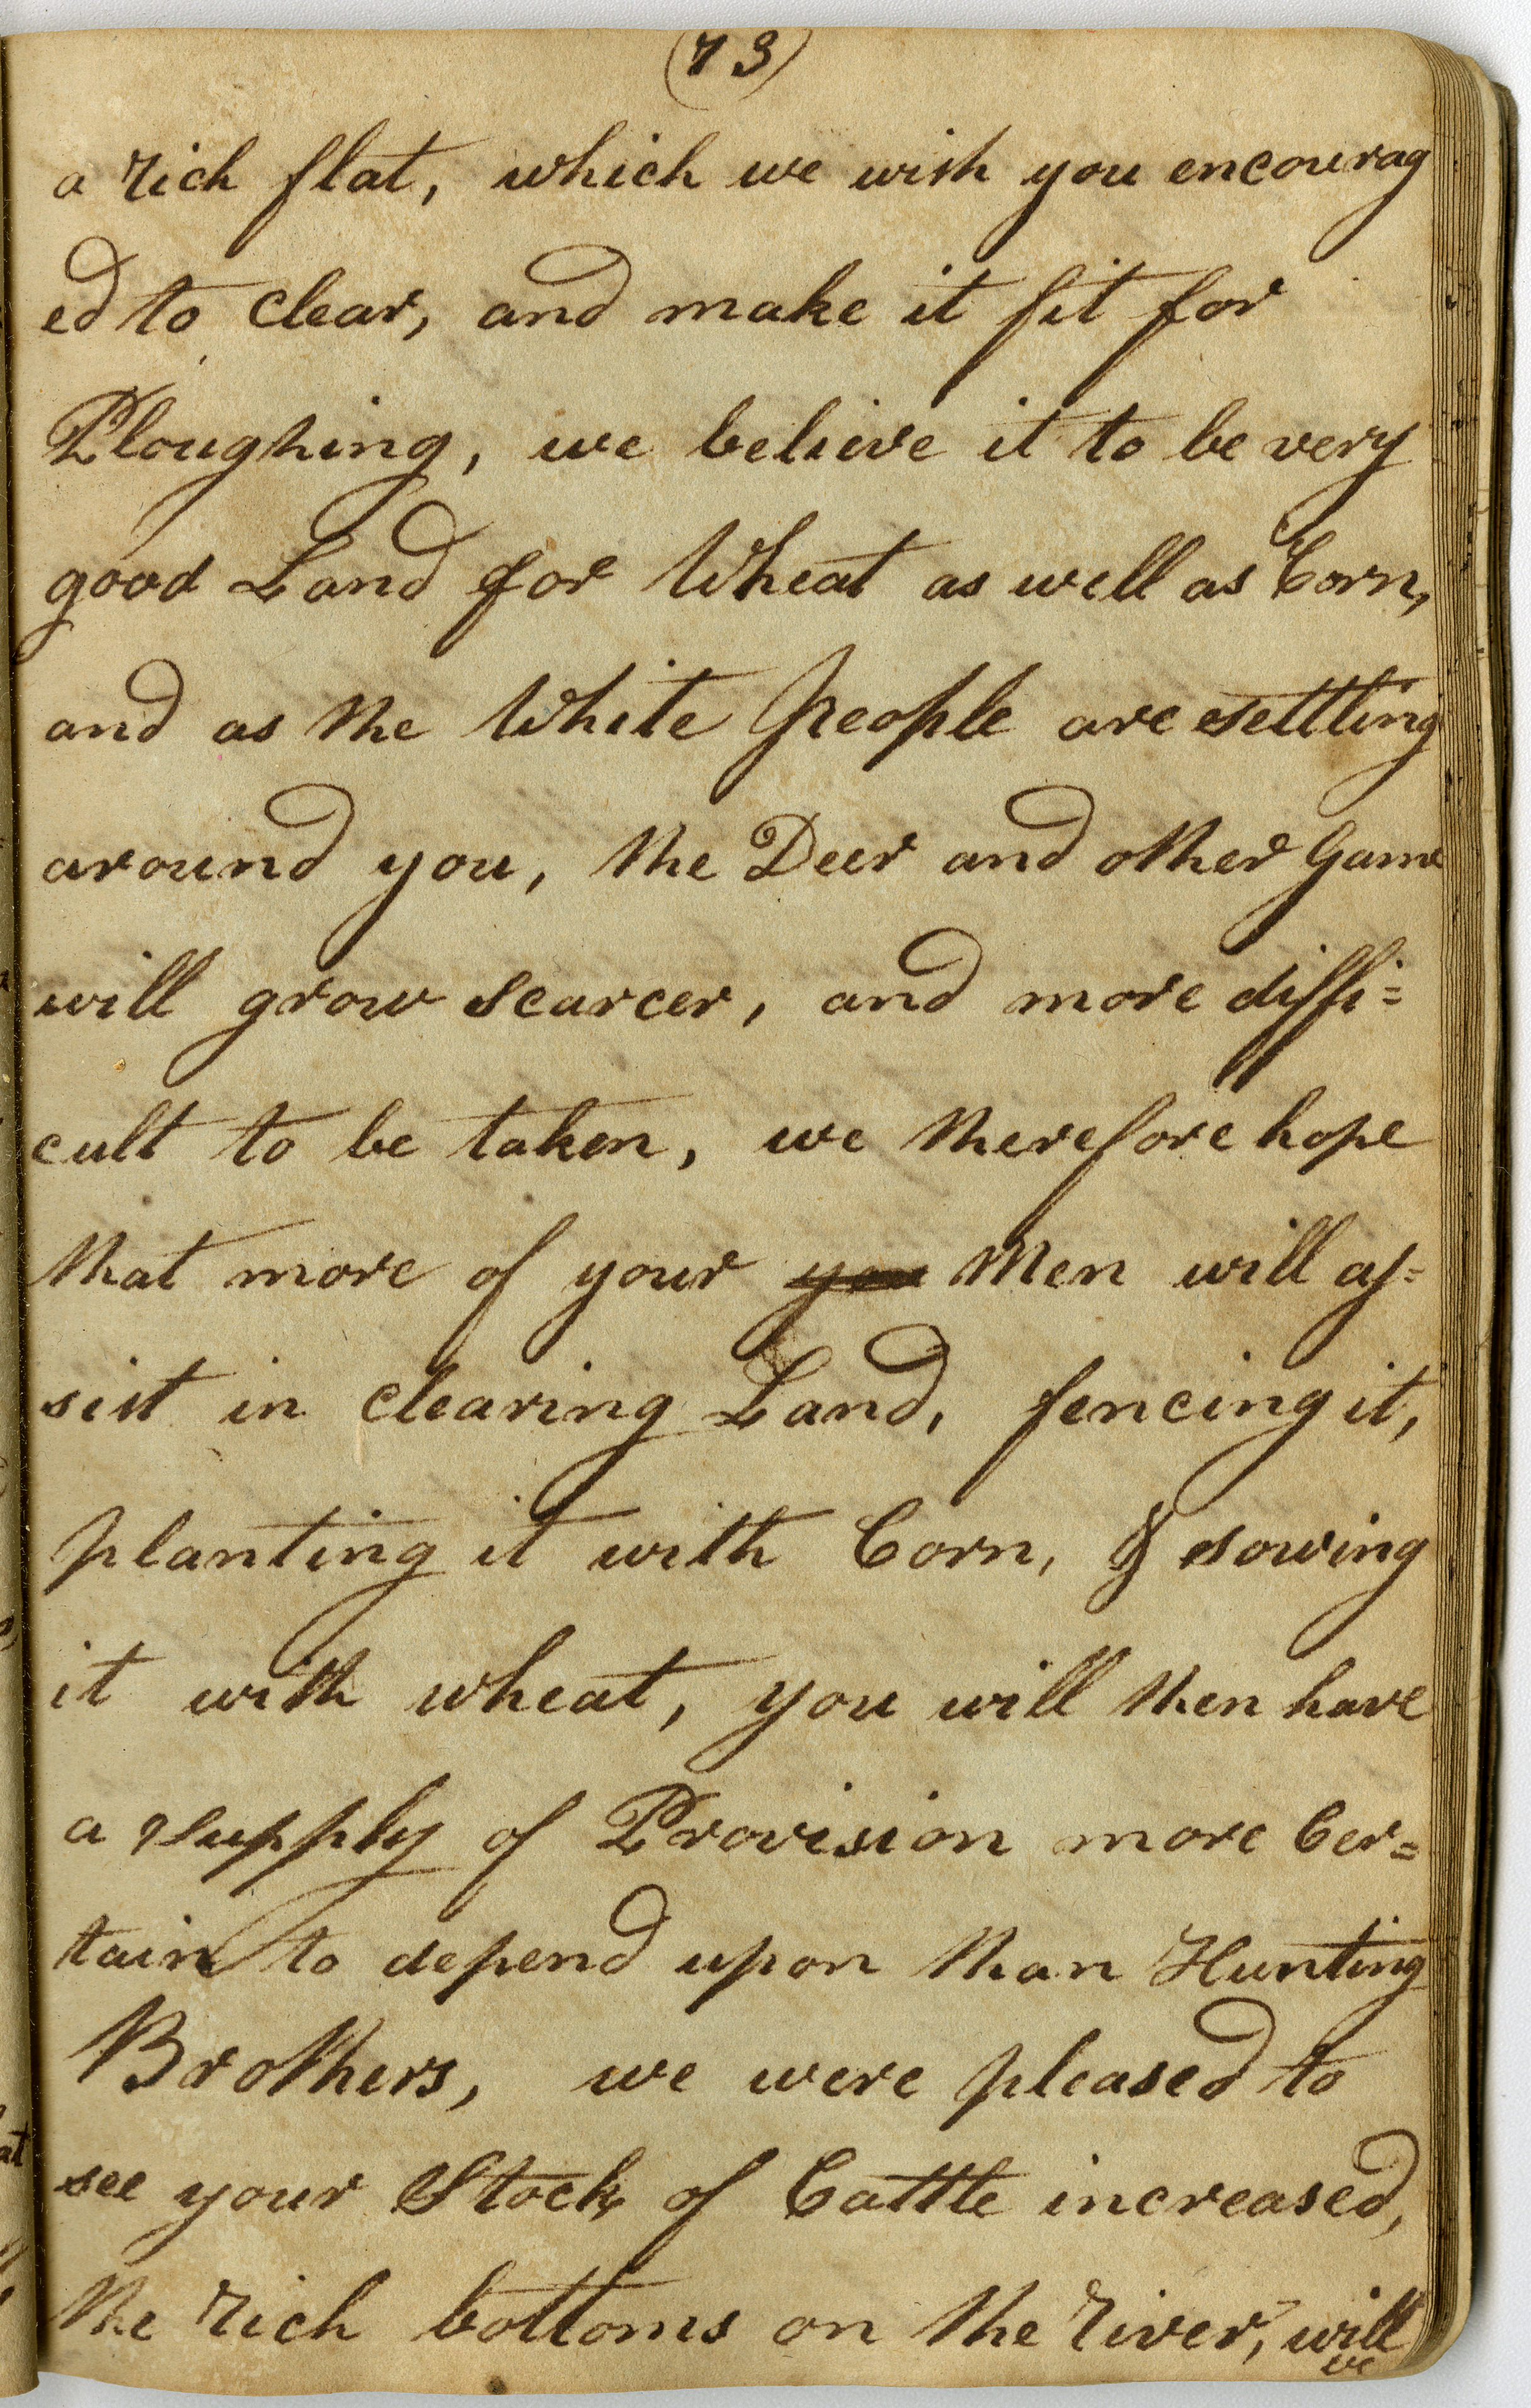 (73)
a rich flat, which we wish you encourag
ed to clear, and make it fit for
Ploughing, we believe it to be very
good Land for Wheat as well as Corn,
and as the White People are settling
around you, the Deer and other Game
will grow scarcer, and more diffi=
cult to be taken, we therefore hope
that more of your you Men will as=
sist in clearing Land, fencing it,
planting it with Corn, & sowing
it with wheat, you will then have
a supply of Provision more Cer=
tain to depend upon than Hunting
Brothers, we were pleased to
see your Stock of Cattle increased,
the rich bottoms on the river, will